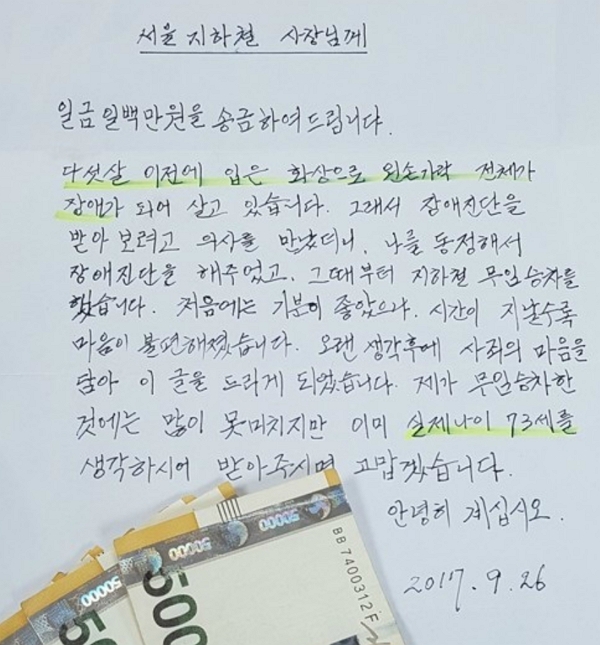 서울 지하철 사장님께
일금 일백만원을 송금하여드립니다.
다섯살 이전에 입은 화상으로 왼손가락 전체가
장애가 되어 살고 있습니다. 그래서 장애진단을
받아 보려고 의사를 만났더니, 나를 동정해서
장애진단을 해주었고, 그때부터 지하철 무임승차를
했습니다. 처음에는 기분이 좋았으나, 시간이 지날수록
마음이 불편해졌습니다. 오랜 생각후에 사죄의 마음을
담아 이 글을 드리게 되었습니다. 제가 무임승차한
것에는 많이 못미치지만 이미 실제나이 73세를
생각하시어 받아주시면 고맙겠습니다.
안녕히 계십시오.
2017. 9. 26
50000
50000
50000
50000
BB7400312F
500
50